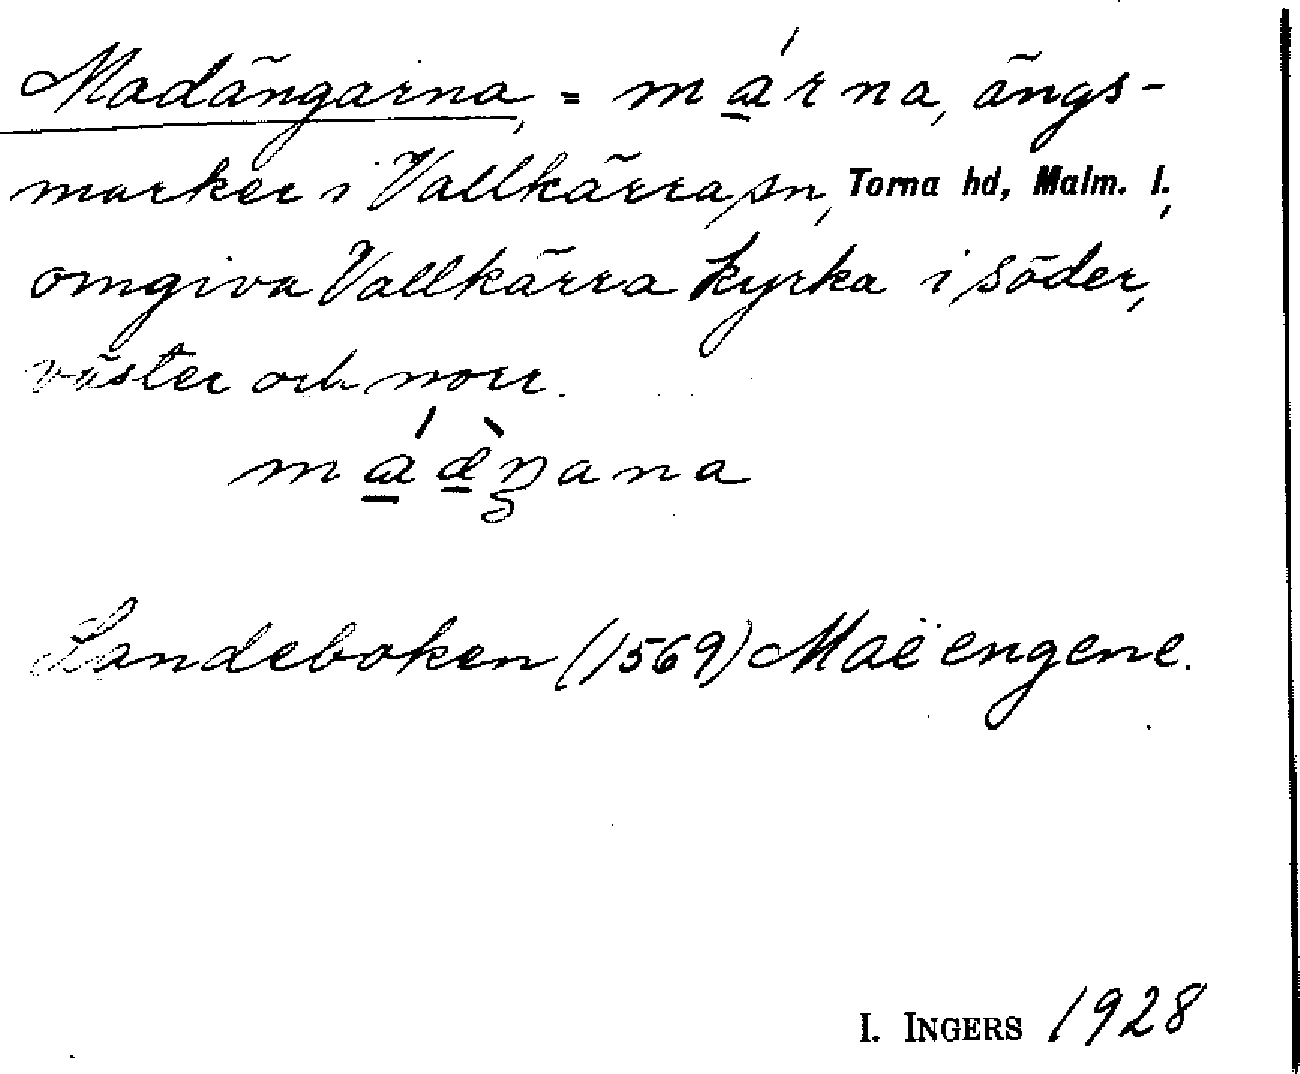 Madängarna, = ma̱´rna, ängs-
marker i Vallkärra sn, Torna hd, Malm. l.,
omgiva Vallkärra kyrka i söder,
väster och norr.
ma̱´æ̱̀ŋana
Landeboken (1569) Maëengene.
I. INGERS 1928